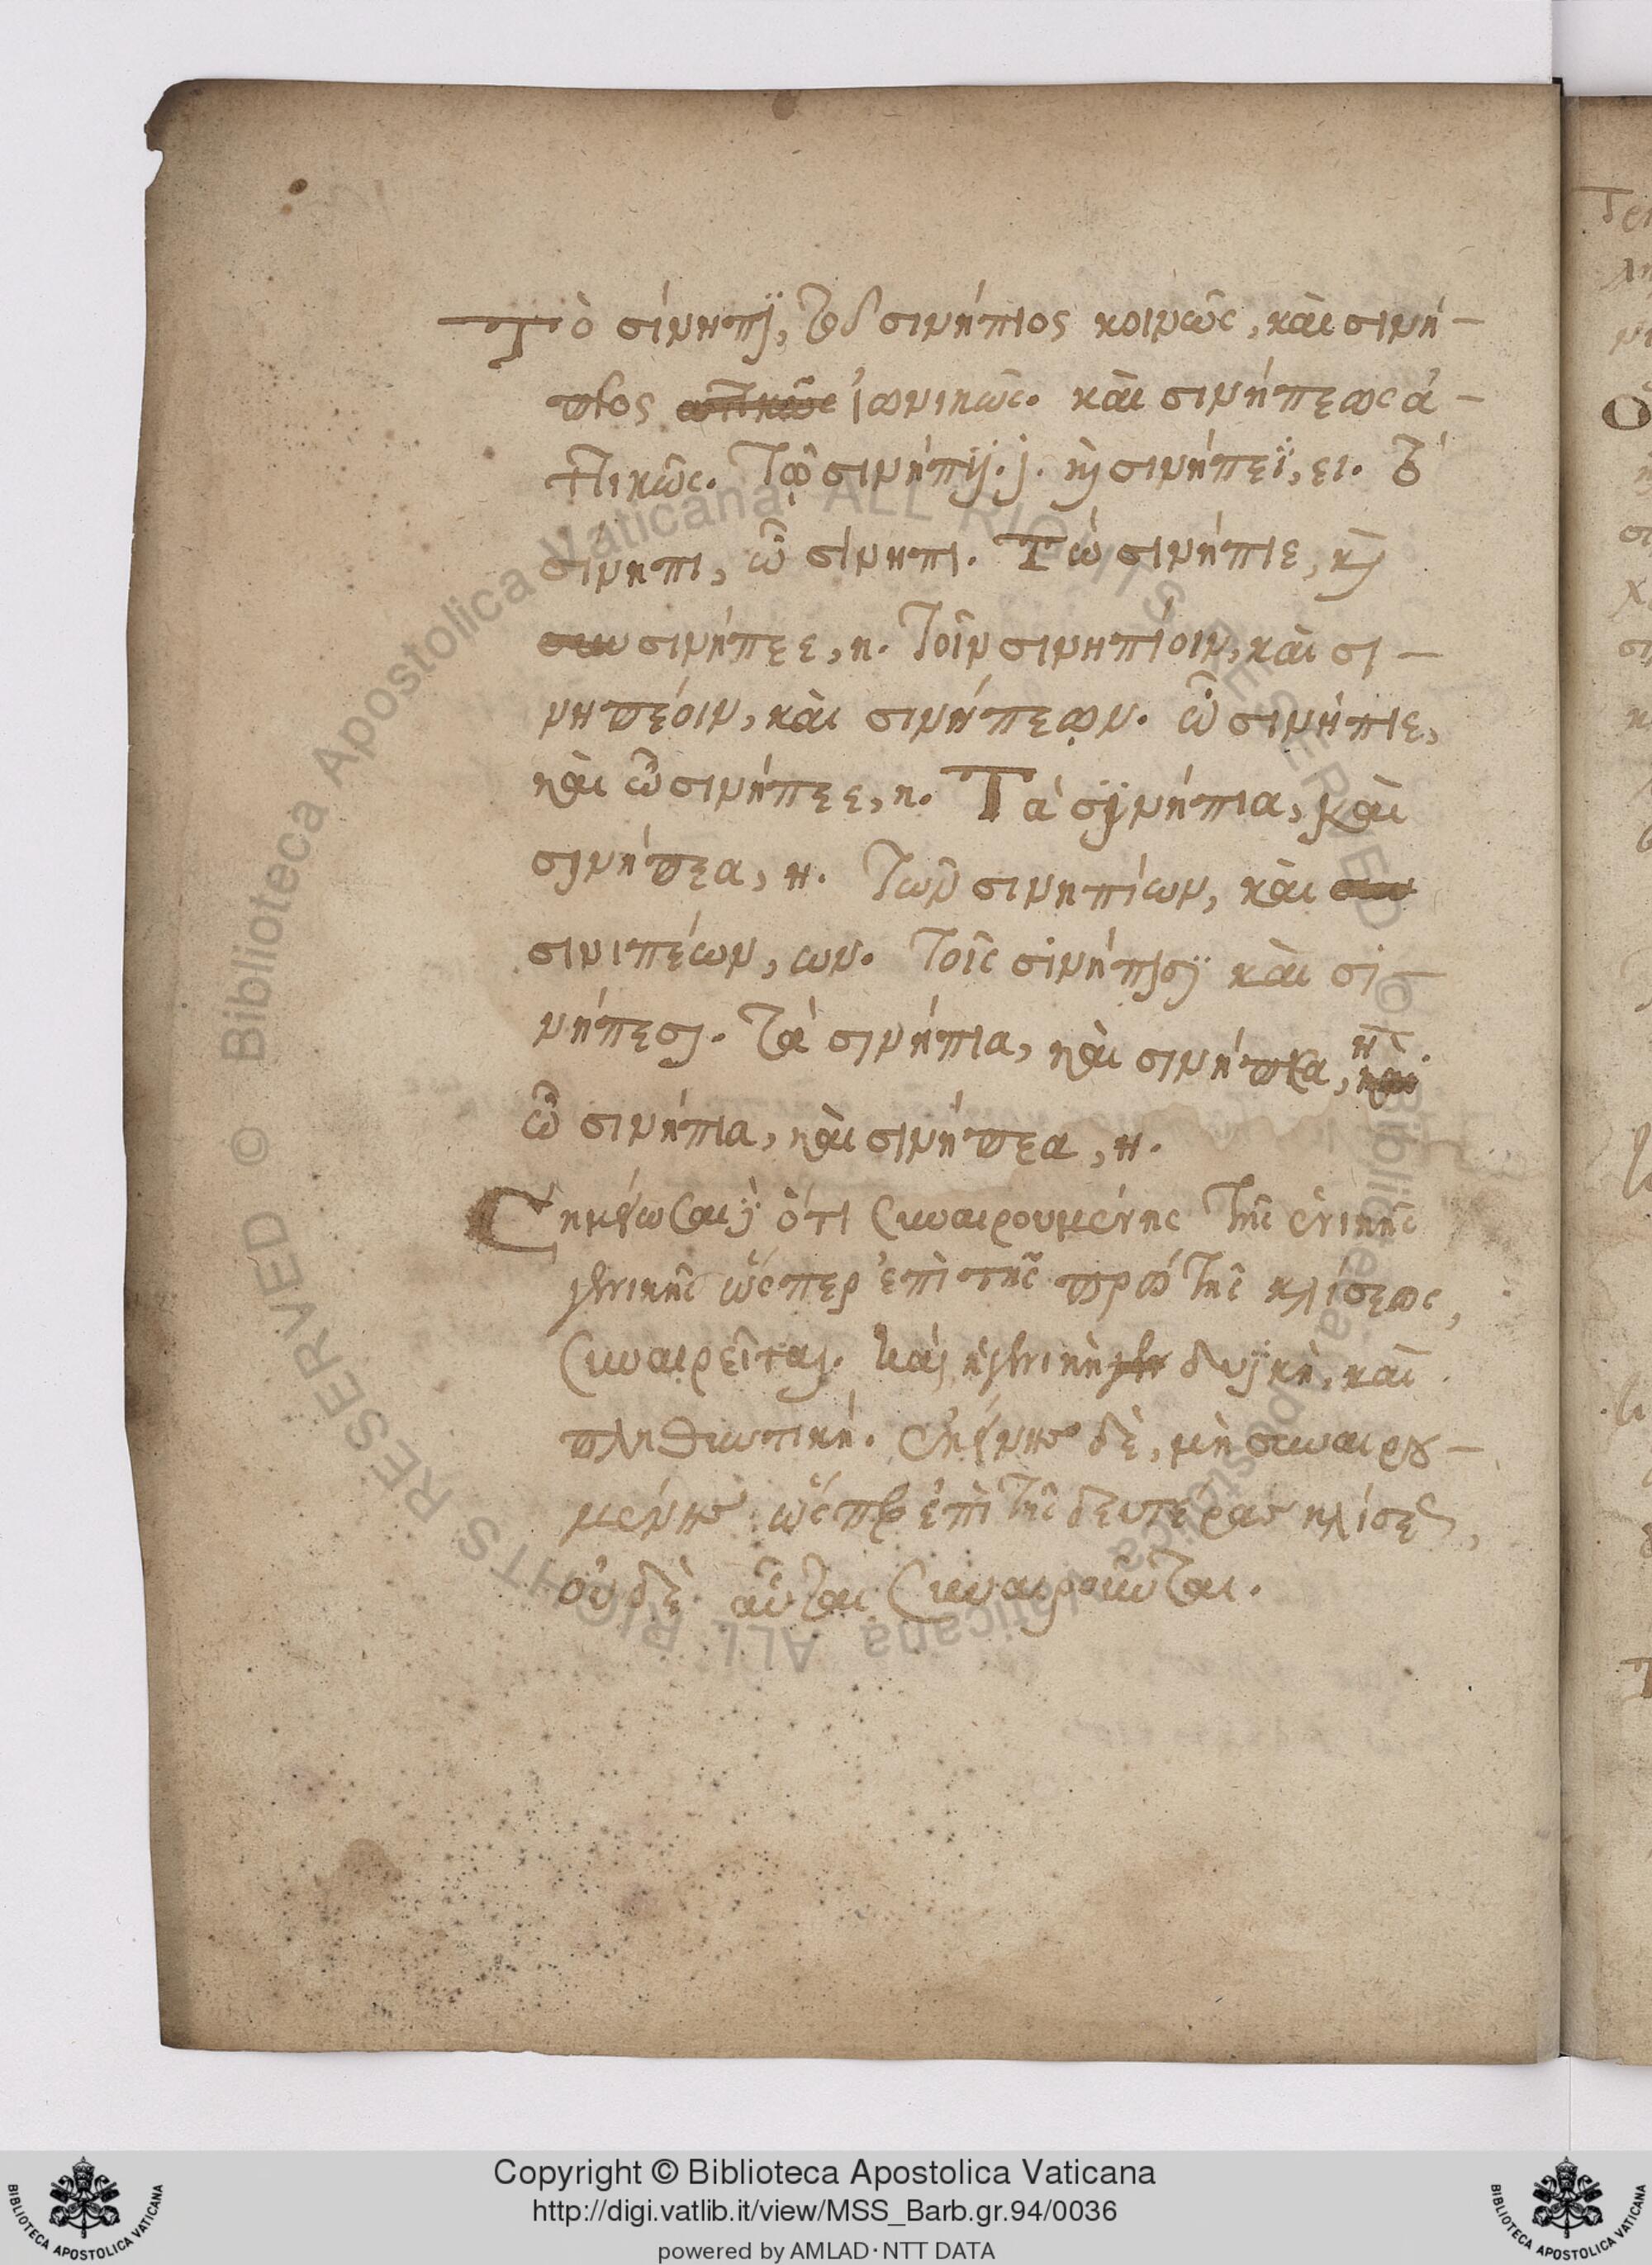 Τὸ σίνηπϊ, τοῦ σινήπιος κοινῶς, καὶ σινή-
πεος ἀττικῶς ἰωνικῶς. καὶ σινήπεως ἀ-
ττικῶς. Τῷ σινήπϊι. ι. καὶ σινήπεϊ, ει. τὸ
σίνηπι, ὦ σίνηπι. Τὼ σινήπιε, καὶ
σιν σινήπεε, η. Τοῖν σινηπίοιν, καὶ σι-
νηπέοιν, καὶ σινήπεῳν. ὦ σινήπιε,
καὶ ὦ σινήπεε, η. Τὰ σϊνήπια, καὶ
σινήπεα, η. Τῶν σινηπίων, καὶ σιν
σινιπέων, ων. Τοῖς σινήπισϊ καὶ σι-
νήπεσι. Τὰ σινήπια, καὶ σινήπεα, η. καὶ
ὦ σινήπια, καὶ σινήπεα, η.
Σημείωσαι ὅτι συναιρουμένης τῆς ἑνικῆς
γενικῆς ὥσπερ ἐπὶ τῆς πρώτης κλίσεως,
συναιρεῖται καὶ ἡ γενικὴ γεν δυϊκὴ, καὶ
πληθυντική. ἐκείνης δὲ, μὴ συναιρου-
μένης ὥσπερ ἐπὶ τῆς δευτέρας κλίσεως,
οὐδὲ αὗται συναιροῦνται.
Biblioteca Apostolica Vaticana ALL RIGHTS RESERVED © Biblioteca Apostolica Vaticana ALL RIGHTS RESERVED ©
Copyright © Biblioteca Apostolica Vaticana
http://digi.vatlib.it/view/MSS_Barb.gr.94/0036
powered by AMLAD·NTT DATA
BIBLIOTECA APOSTOLICA VATICANA
BIBLIOTECA APOSTOLICA VATICANA